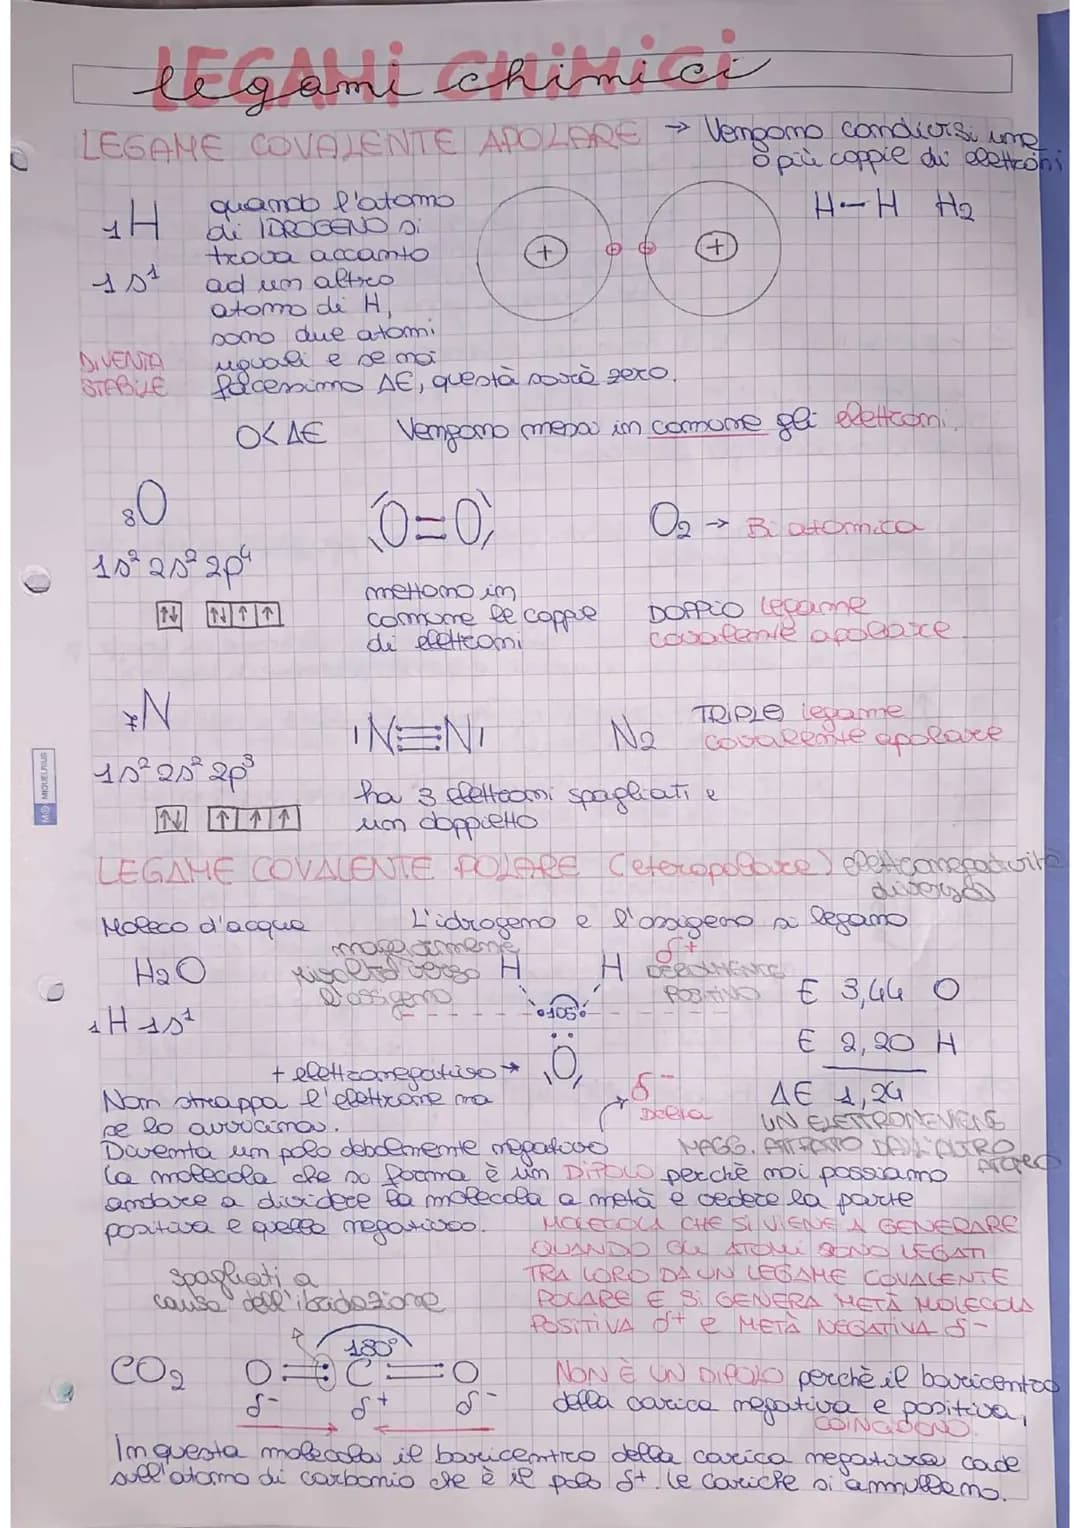 LEGAMi CHiMiCi
legami chimici
LEGAME COVALENTE APOLARE → Vengono condivisi una
o più coppie di elettroni
1H
quando l'atomo
di IDROGENO si
trova accanto
ad un altro
atomo di H,
sono due atomi
uguali e se noi
facessimo ΔE, questa sarà zero.
1s¹
DiVENTA
STABILE
+ +
H-H H2
0<ΔE Vengono messi in comune gli elettroni.
8O
1s² 2s² 2p⁴
O=O
mettono in
comune le coppie
di elettroni
O2 → Biatomica
DOPPIO legame
covalente apolare
7N
1s² 2s² 2p³
N≡N
N2
TRIPLO legame
covalente apolare
ha 3 elettroni spagliati e
un doppietto
MIQUELRIUS
LEGAME COVALENTE POLARE (eteropolare) elettronegatività
diversa
Moleco d'acqua L'idrogeno e l'ossigeno si legano
H2O
maggiormente
rivolto verso
l'ossigeno
H H
δ+
DEBOLMENTE
POSITIVO
105°
1H 1s¹
E 3,44 O
E 2,20 H
ΔE 1,24
+ elettronegativo →
O
δ-
Delta
Non strappa l'elettrone ma
se lo avvicina.
UN ELETTRONE VIENE
MAGG. ATTRATTO DALL'ALTRO
Diventa un polo debolmente negativo
La molecola che si forma è un DiPOLO perchè noi possiamo
andare a dividere la molecola a metà e vedere la parte
positiva e quella negativa.
MOLECOLA CHE SI VIENE A GENERARE
QUANDO GLI ATOMI SONO LEGATI
TRA LORO DA UN LEGAME COVALENTE
POLARE E Si GENERA METÀ MOLECOLA
POSITIVA δ+ e METÀ NEGATIVA δ-
spagliati a
causa dell'ibridazione
180°
CO2 O=C=O
δ- δ+ δ-
NON È UN DiPOLO perchè il baricentro
della carica negativa e positiva,
COINCIDONO.
In questa molecola il baricentro della carica negativa cade
sull'atomo di carbonio che è il polo δ+. le cariche si annullano.